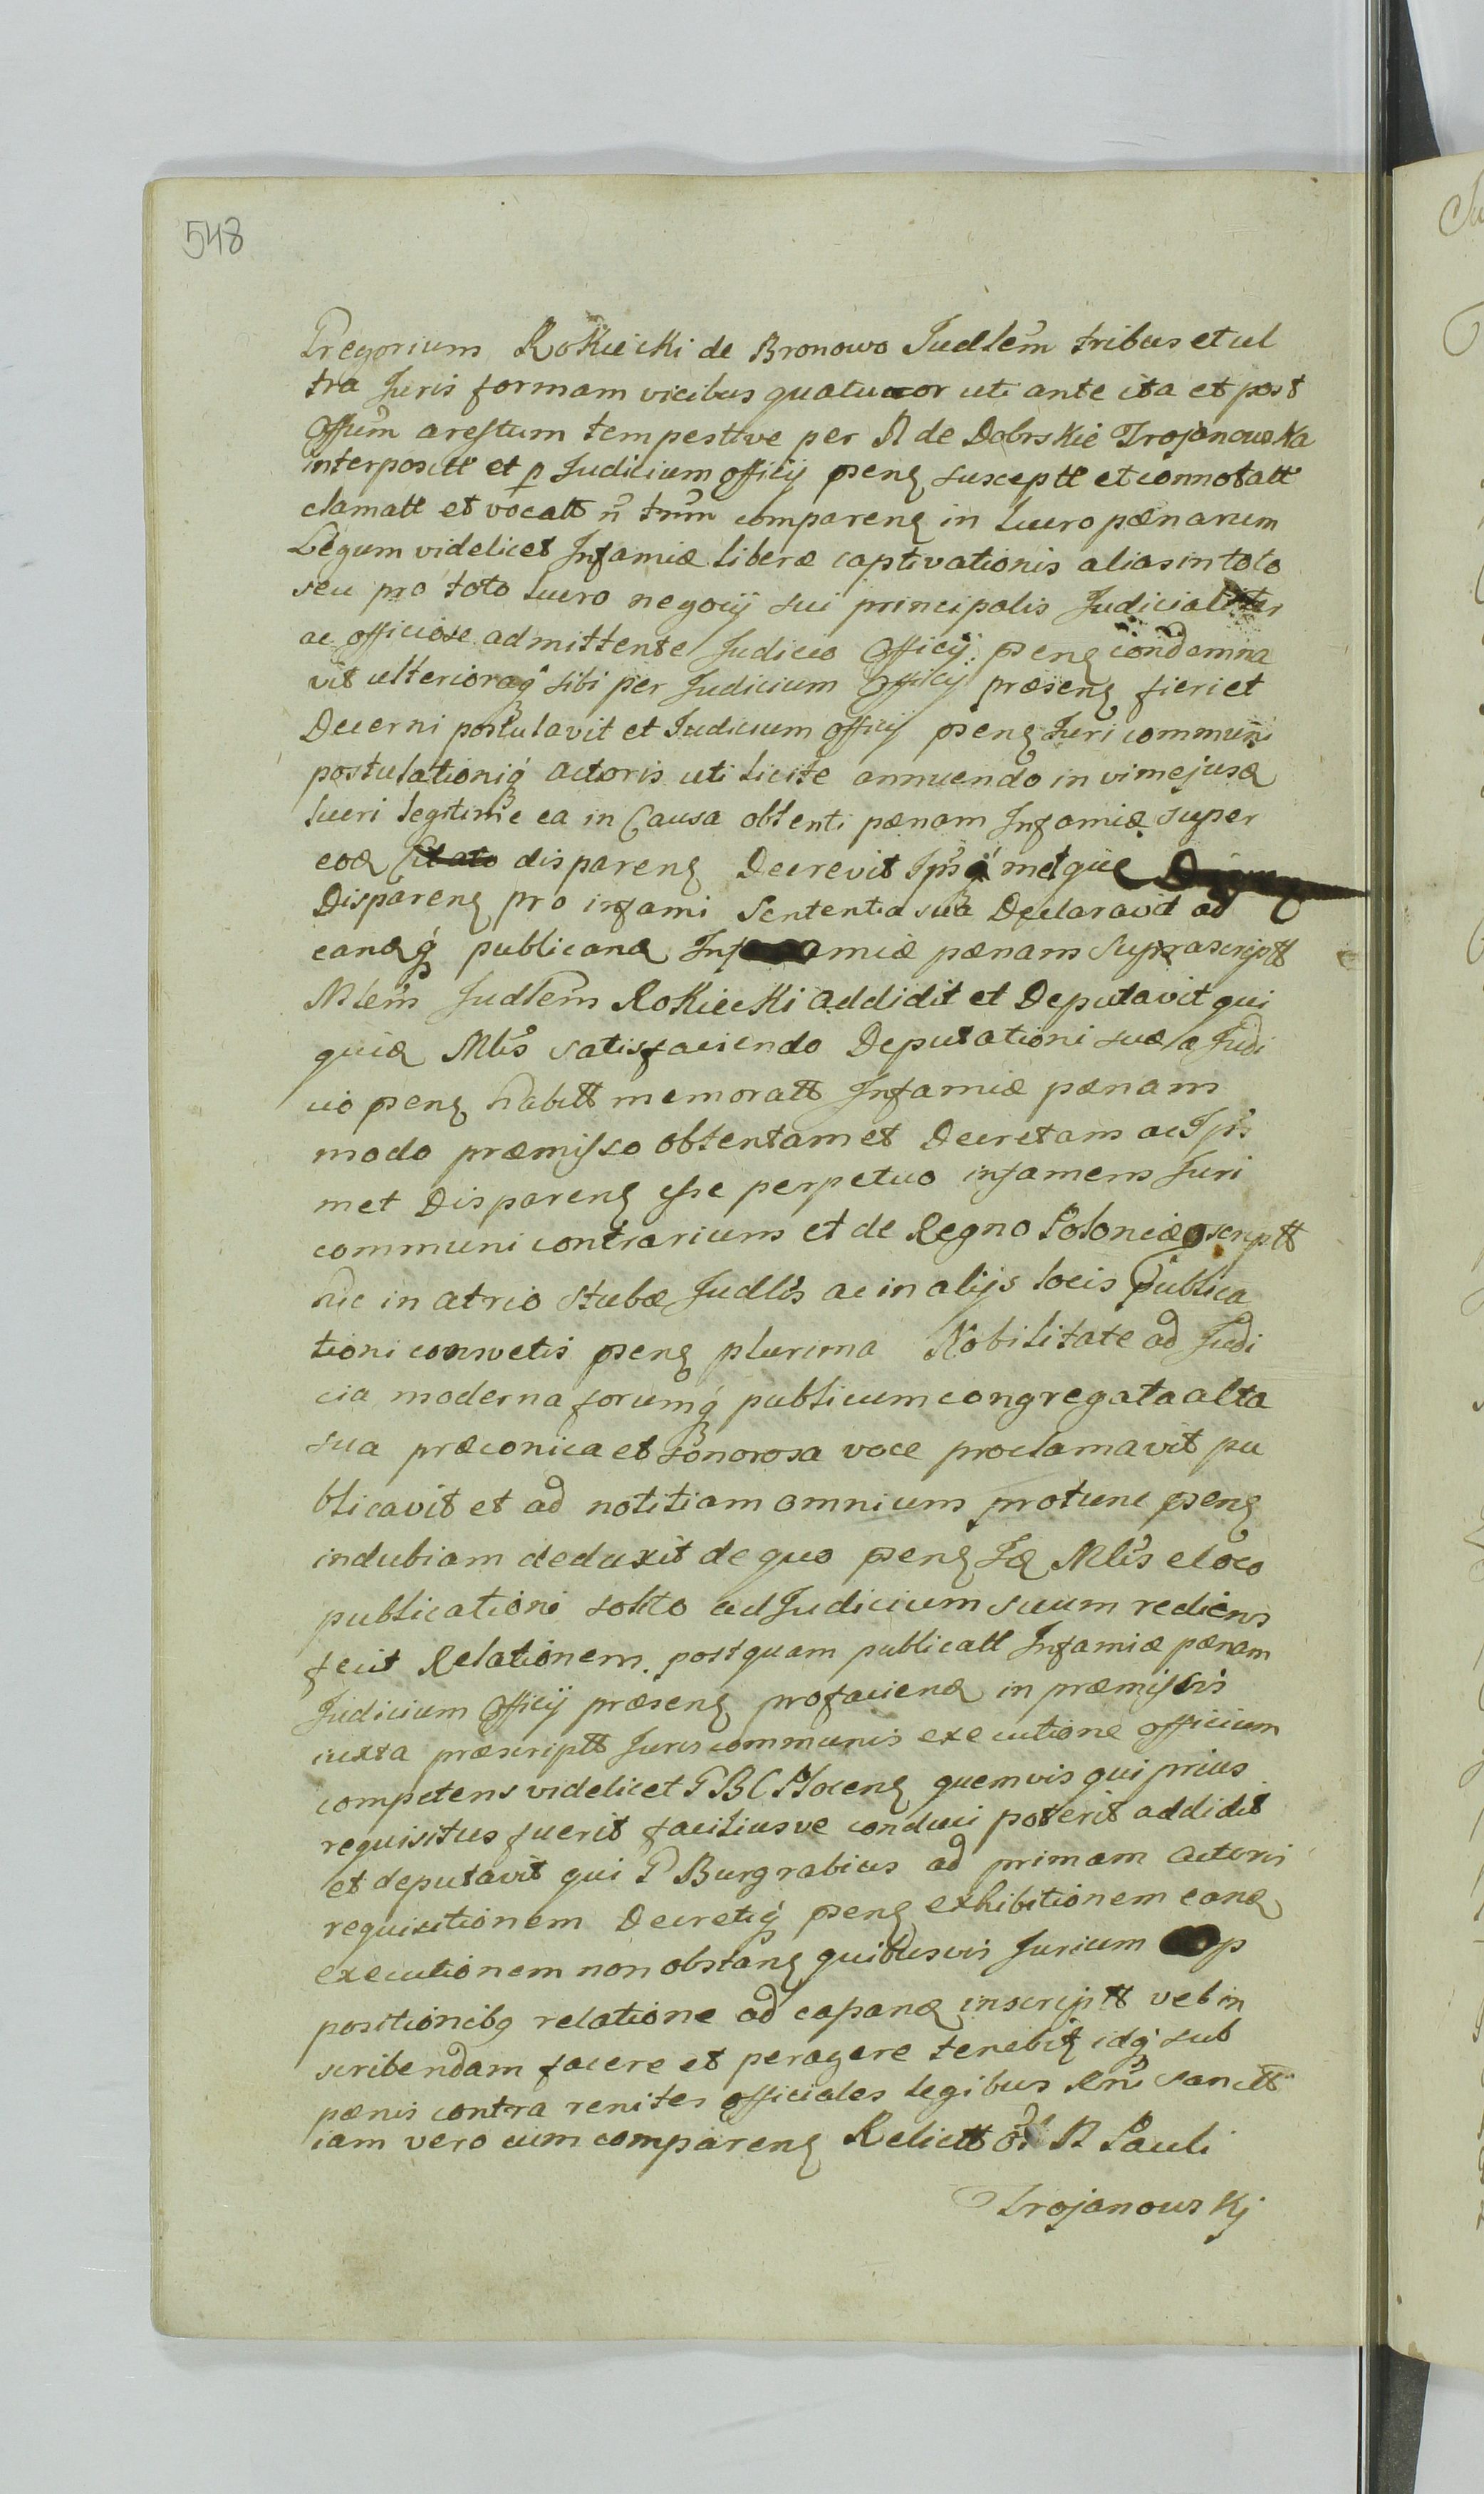 548
Gregorium Rokiecki de Bronowo Judlem tribus et ul
tra Juris formam vicibus quatuor uti ante ita et post
Offum arestum tempestive per N de Dobrskie Trojanowska
interpositt et p Judicium officij psens susceptt et connotatt
clamatt et vocatt n tnm comparens in lucro pænarum
Legum videlicet Infamiæ liberæ captivationis alias in toto
seu pro toto lucro negocij sui principalis Judicialiter
ac officiose admittente Judicio Officij psens condemna
vit ulterioraq sibi per Judicium Officij præsens fieri et
Decerni postulavit et Judicium officij psens Juri communi
postulationiq actoris uti licite annuendo in vim ejusd
lucri legitime ea in Causa obtenti pænam Infamiæ super
eod disparens Decrevit Ipsq metque
Disparens pro infami Sententia sua Declaravit ad
eandq publicand Infamiæ pænam suprascriptt
Mlem Judlem Rokiecki addidit et Deputavit qui
quid Mlis satisfaciendo Deputationi suæ a Judi
cio psens habitt memoratt Infamiæ pænam
modo præmisso obtentam et Decretam ac Ips
met Disparens esse perpetuo infamem Juri
communi contrarium et de Regno Poloniæ pscriptt
hic in atrio stubæ Judlis ac in alijs locis Publica
tioni consvetis psens plurima Nobilitate ad Judi
cia moderna forumq publicum congregata alta
sua præconica et sonorosa voce proclamavit pu
blicavit et ad notitiam omnium protunc psens
indubiam deduxit de quo psens Id Mlis e loco
publicationi solito ad Judicium suum rediens
fecit Relationem. postquam publicatt Infamiæ pænam
Judicium Officij præsens pro faciend in præmissis
iuxta præscriptt Juris communis executione officium
competens videlicet G B C Plocens quemvis qui prius
requisitus fuerit faciliusve conduci poterit addidit
et deputavit qui G Burgrabius ad primam actoris
requisitionem Decretiq psens exhibitionem eand
executionem non obstans quibusvis Jurium op
positionibq relatione ad capand inscriptt vel in
scribendam facere et peragere tenebit idq sub
pænis contra renites officiales legibus Rni sanctt
iam vero cum comparens Relictt N Pauli
Trojanowskj